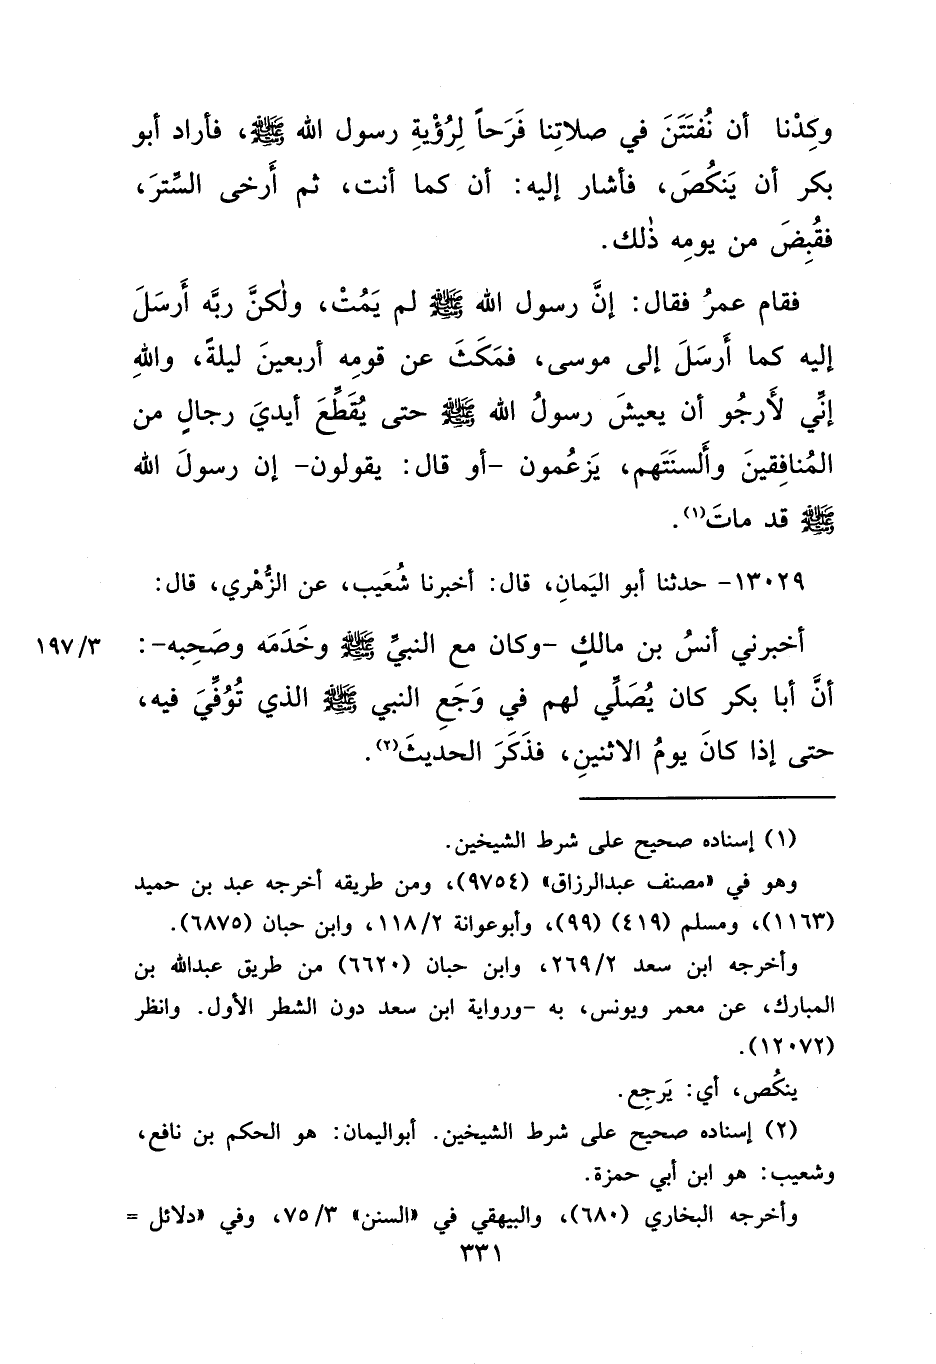 وكِدْنا أن نُفتَتَنَ في صلاتِنا فَرَحاً لِرُؤْيةِ رسول الله ﷺ، فأراد أبو
بكر أن يَنكُصَ، فأشار إليه: أن كما أنت، ثم أَرخى السِّترَ،
فقُبِضَ من يومِه ذٰلك.
فقام عمرُ فقال: إنَّ رسول الله ﷺ لم يَمُتْ، ولٰكنَّ ربَّه أَرسَلَ
إليه كما أَرسَلَ إلى موسى، فمَكَثَ عن قومِه أربعينَ ليلةً، واللهِ
إنِّي لأَرجُو أن يعيشَ رسولُ الله ﷺ حتى يُقَطِّعَ أيديَ رجالٍ من
المُنافِقينَ وأَلسنَتَهم، يَزعُمون -أو قال: يقولون- إن رسولَ الله
ﷺ قد ماتَ(١).
١٣٠٢٩- حدثنا أبو اليَمانِ، قال: أخبرنا شُعَيب، عن الزُّهْري، قال:
أخبرني أنسُ بن مالكٍ -وكان مع النبيِّ ﷺ وخَدَمَه وصَحِبه-: ١٩٧/٣
أنَّ أبا بكر كان يُصَلِّي لهم في وَجَعِ النبي ﷺ الذي تُوُفِّيَ فيه،
حتى إذا كانَ يومُ الاثنينِ، فذَكَرَ الحديثَ(٢).
(١) إسناده صحيح على شرط الشيخين.
وهو في «مصنف عبدالرزاق» (٩٧٥٤)، ومن طريقه أخرجه عبد بن حميد
(١١٦٣)، ومسلم (٤١٩) (٩٩)، وأبوعوانة ١١٨/٢، وابن حبان (٦٨٧٥).
وأخرجه ابن سعد ٢٦٩/٢، وابن حبان (٦٦٢٠) من طريق عبدالله بن
المبارك، عن معمر ويونس، به -ورواية ابن سعد دون الشطر الأول. وانظر
(١٢٠٧٢).
ينكُص، أي: يَرجِع.
(٢) إسناده صحيح على شرط الشيخين. أبواليمان: هو الحكم بن نافع،
وشعيب: هو ابن أبي حمزة.
وأخرجه البخاري (٦٨٠)، والبيهقي في «السنن» ٧٥/٣، وفي «دلائل =
٣٣١